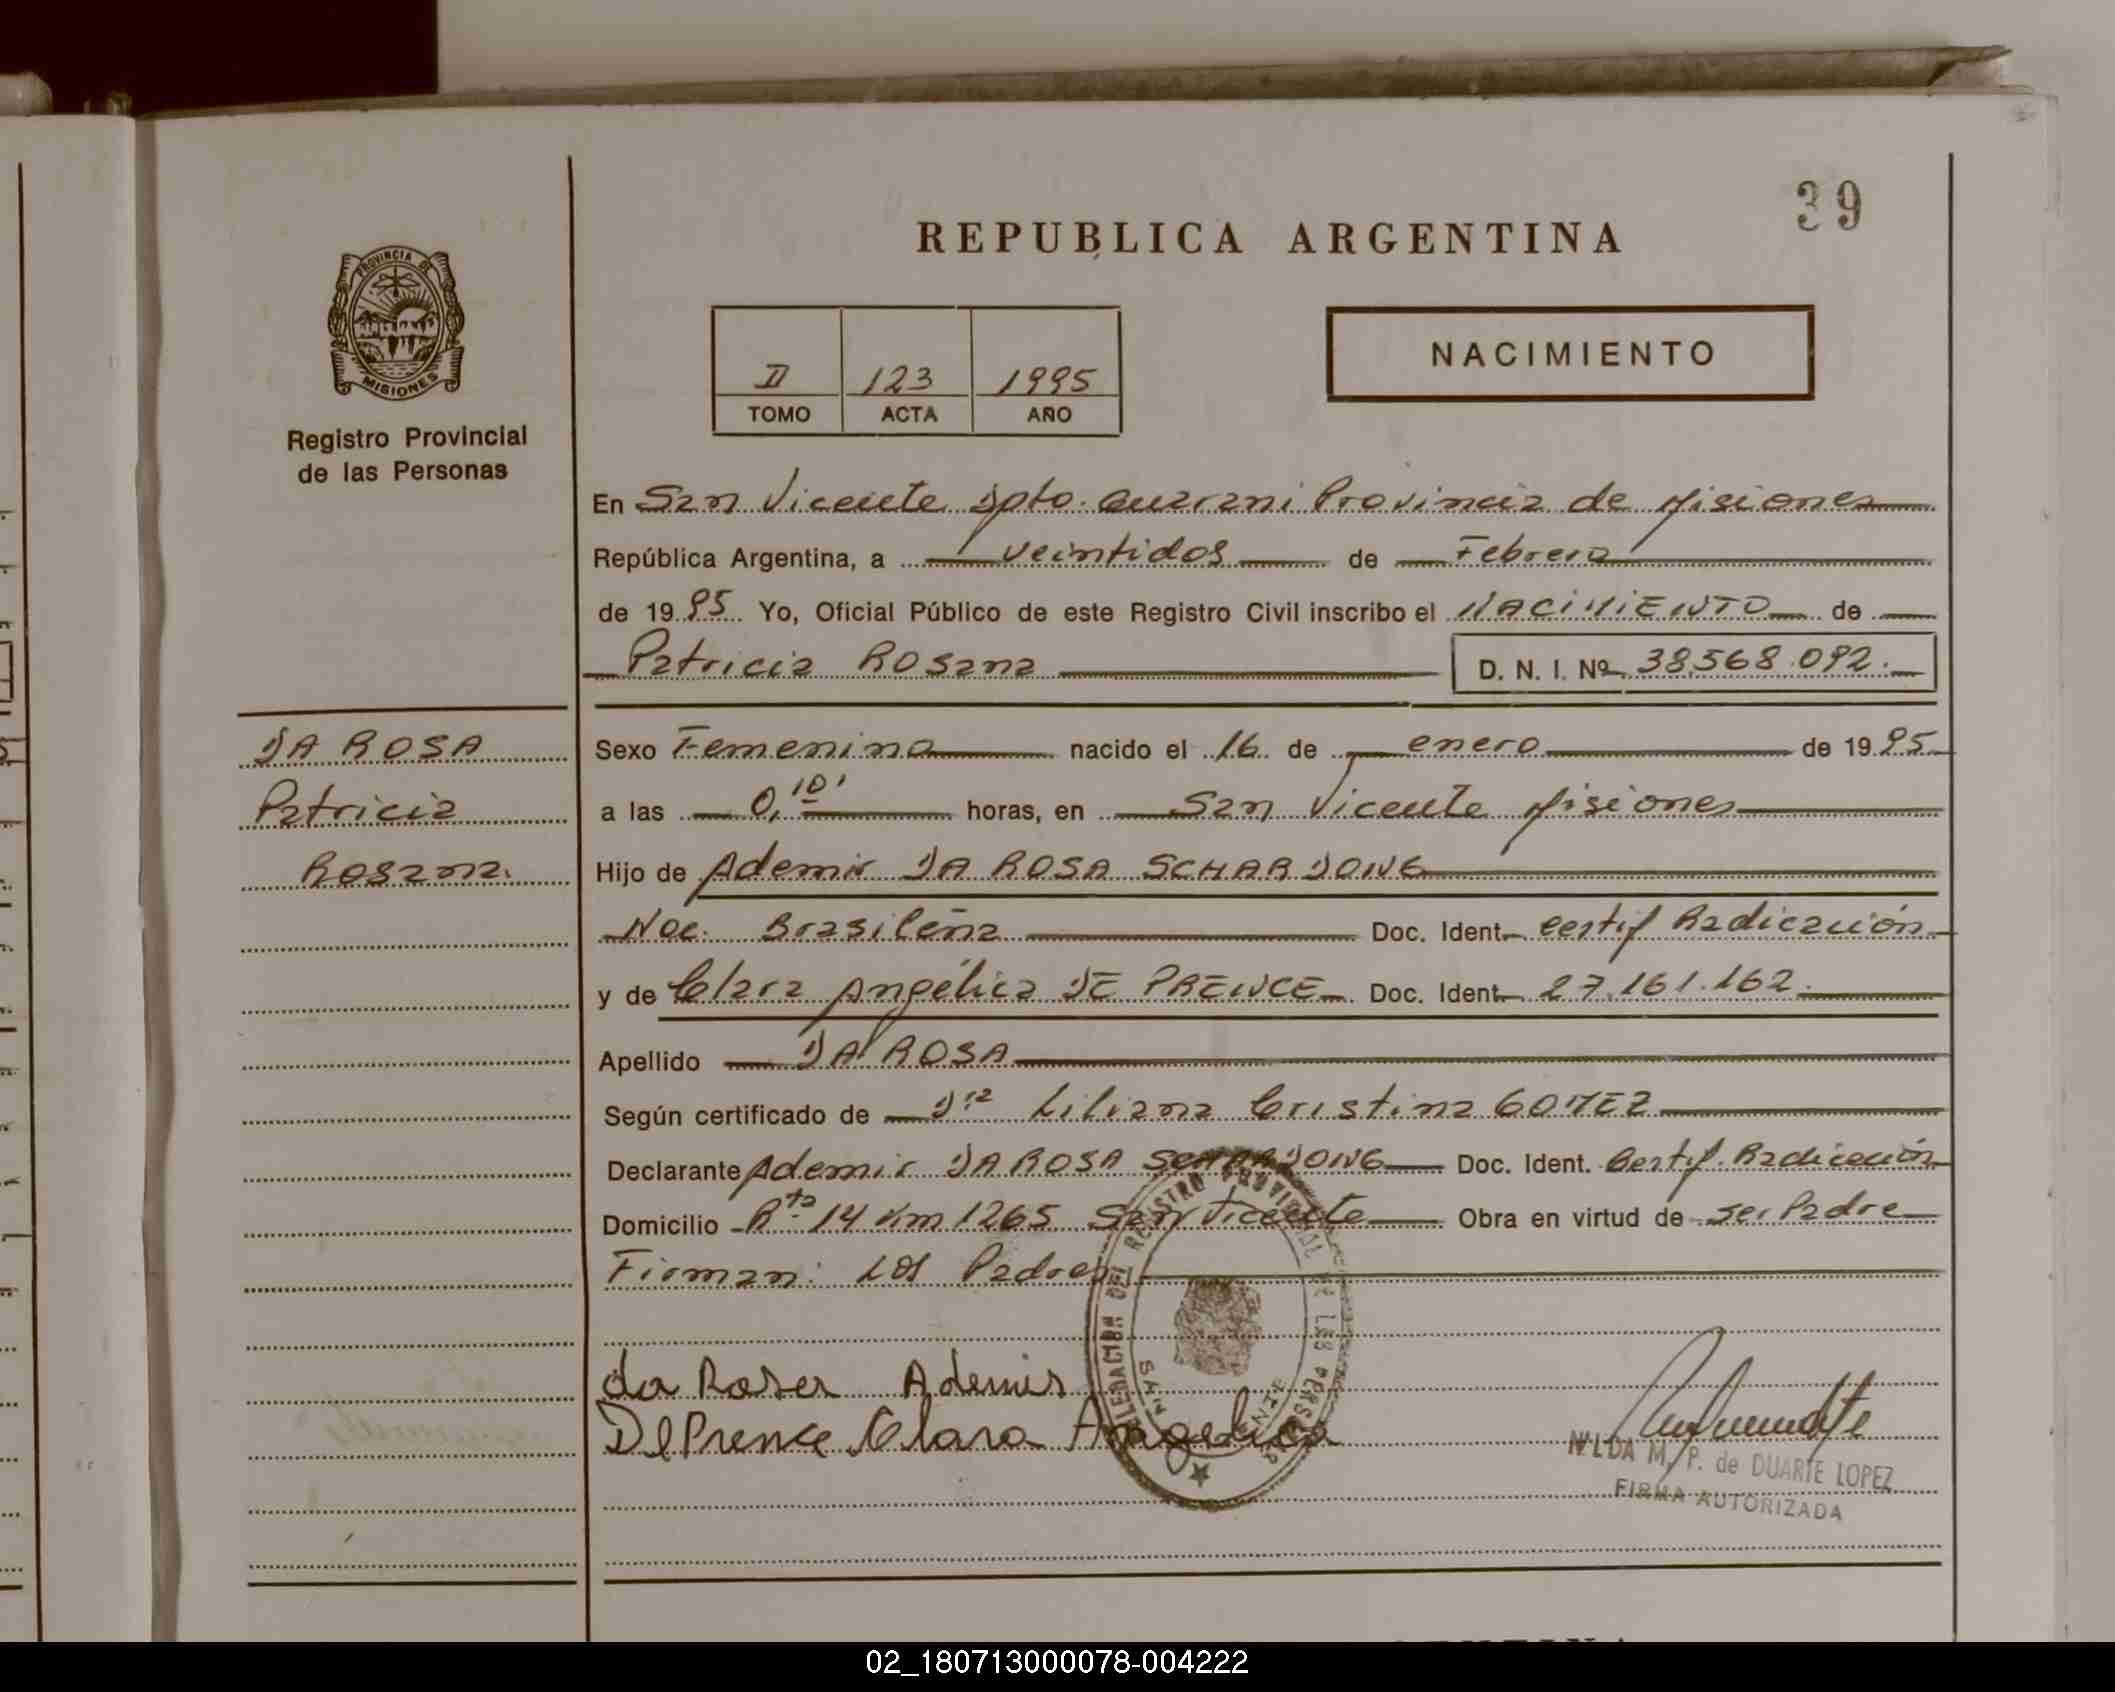 39
REPUBLICA ARGENTINA
PROVINCIA DE
MISIONES
Registro Provincial
de las Personas
II 123 1995
TOMO ACTA AÑO
NACIMIENTO
En San Vicente Dpto. Guarani Provincia de Misiones
República Argentina, a veintidos de Febrero
de 1995 Yo, Oficial Público de este Registro Civil inscribo el NACIMIENTO de
Patricia Rosana D. N. I. Nº 38.568.092.
DA ROSA
Patricia
Rosana.
Sexo Femenino nacido el 16 de enero de 1995
a las 0,10' horas, en San Vicente Misiones
Hijo de Ademir DA ROSA SCHARDONG
Nac. Brasileña Doc. Ident. Certif Radicación
y de Clara Angélica DE PRENCE Doc. Ident. 27.161.162.
Apellido DA ROSA
Según certificado de Dra Liliana Cristina GOMEZ
Declarante Ademir DA ROSA SCHARDONG Doc. Ident. Certif. Radicación
Domicilio Rta 14 Km 1265 San Vicente Obra en virtud de ser Padre
Firman: Los Padres
DELEGACION DEL REGISTRO PROVINCIAL DE LAS PERSONAS
SAN VICENTE
da Rosa Ademir
De Prence Clara Angelica
NILDA M. P. de DUARTE LOPEZ
FIRMA AUTORIZADA
02_180713000078-004222